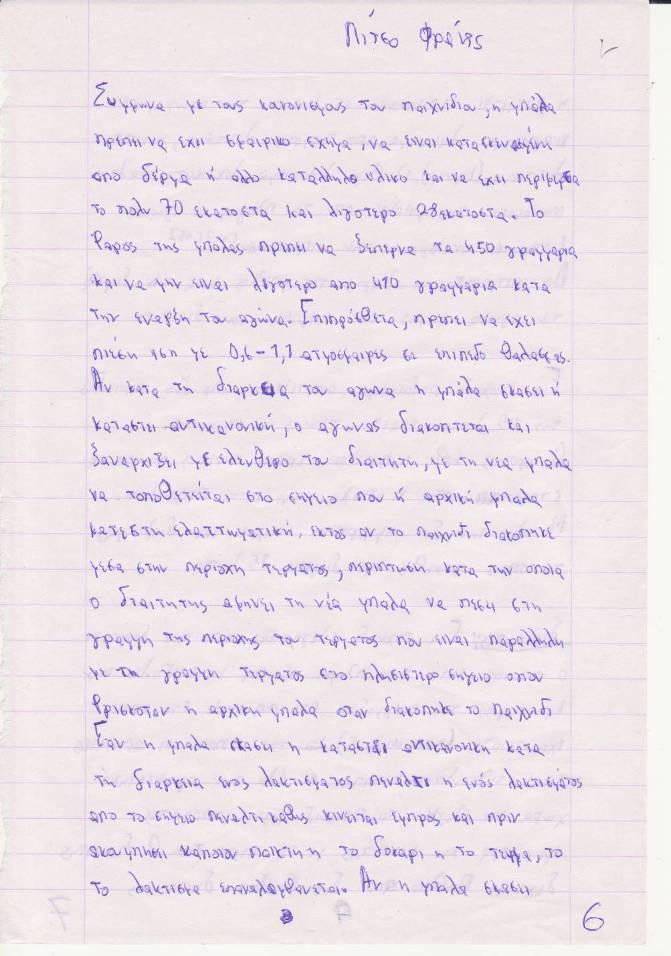 Πίτερ Φράνης
Συμμωνα με τους κανονισμους του παιχνιδιου, η μπάλα
πρεπει να εχει σφαιρικο σχημα, να ειναι κατασκευασμενη
απο δέρμα ή αλλο καταλληλο υλικο και να εχει περιμετρα
το πολυ 70 εκατοστα και λιγοτερο 28 εκατοστα. Το
βαρος της μπαλας πρεπει να ξεπερνα τα 450 γραμμαρια
και να μην ειναι λιγοτερο απο 410 γραμμαρια κατα
την εναρξη του αγώνα. Επιπρόσθετα, πρεπει να εχει
πιέση ιση με 0,6-1,1 ατμοσφαιρες σε επιπεδο θαλασσας.
Αν κατα τη διαρκεια του αγωνα η μπάλα σκασει ή
καταστει αντικανονική, ο αγωνας διακοπτεται και
ξαναρχιζει με ελευθερο του διαιτητη, με τη νέα μπαλα
να τοποθετείται στο σημειο που ή αρχική μπαλα
κατεστη ελαττωματική, εκτος αν το παιχνιδι διακοπηκε
μεσα στην περιοχη τερματος, περιπτωση κατα την οποια
ο διαιτητης αφηνει τη νέα μπαλα να πεσει στη
γραμμη της περιοχης του τερματος που ειναι παραλληλη
με τη γραμμη τερματος στο πλησιεστερο σημειο οπου
βρισκοταν η αρχικη μπαλα οταν διακοπηκε το παιχνιδι
Εαν η μπαλα σκασει η καταστει αντικανονικη κατα
τη διαρκεια ενος λακτισματος πεναλτι η ενός λακτισματος
απο το σημειο πεναλτι καθως κινειται εμπρος και πριν
ακουμπησει καποιον παικτη η το δοκαρι η το τερμα, το
το λακτισμα επαναλαμβανεται. Αν η μπαλα σκασει
6